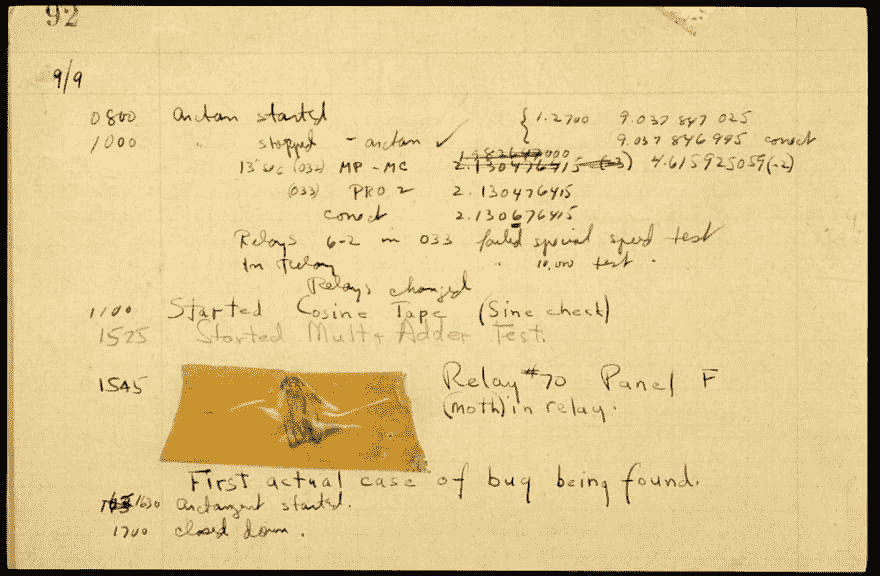 92
9/9
0800 arctan started { 1.2700 9.037 847 025
1000 " stopped - arctan ✓ 9.037 846 995 correct
13"sec (032) MP - MC 2.130476415 (-3) 4.615925059(-2)
(033) PRO 2 2.130476415
correct 2.130676415
Relays 6-2 in 033 failed special speed test
In Relay " 10,000 test .
Relays changed
1100 Started Cosine Tape (Sine check)
1525 Started Mult + Adder Test.
1545 Relay #70 Panel F
(moth) in relay.
First actual case of bug being found.
1630 arctangent started.
1700 closed down.